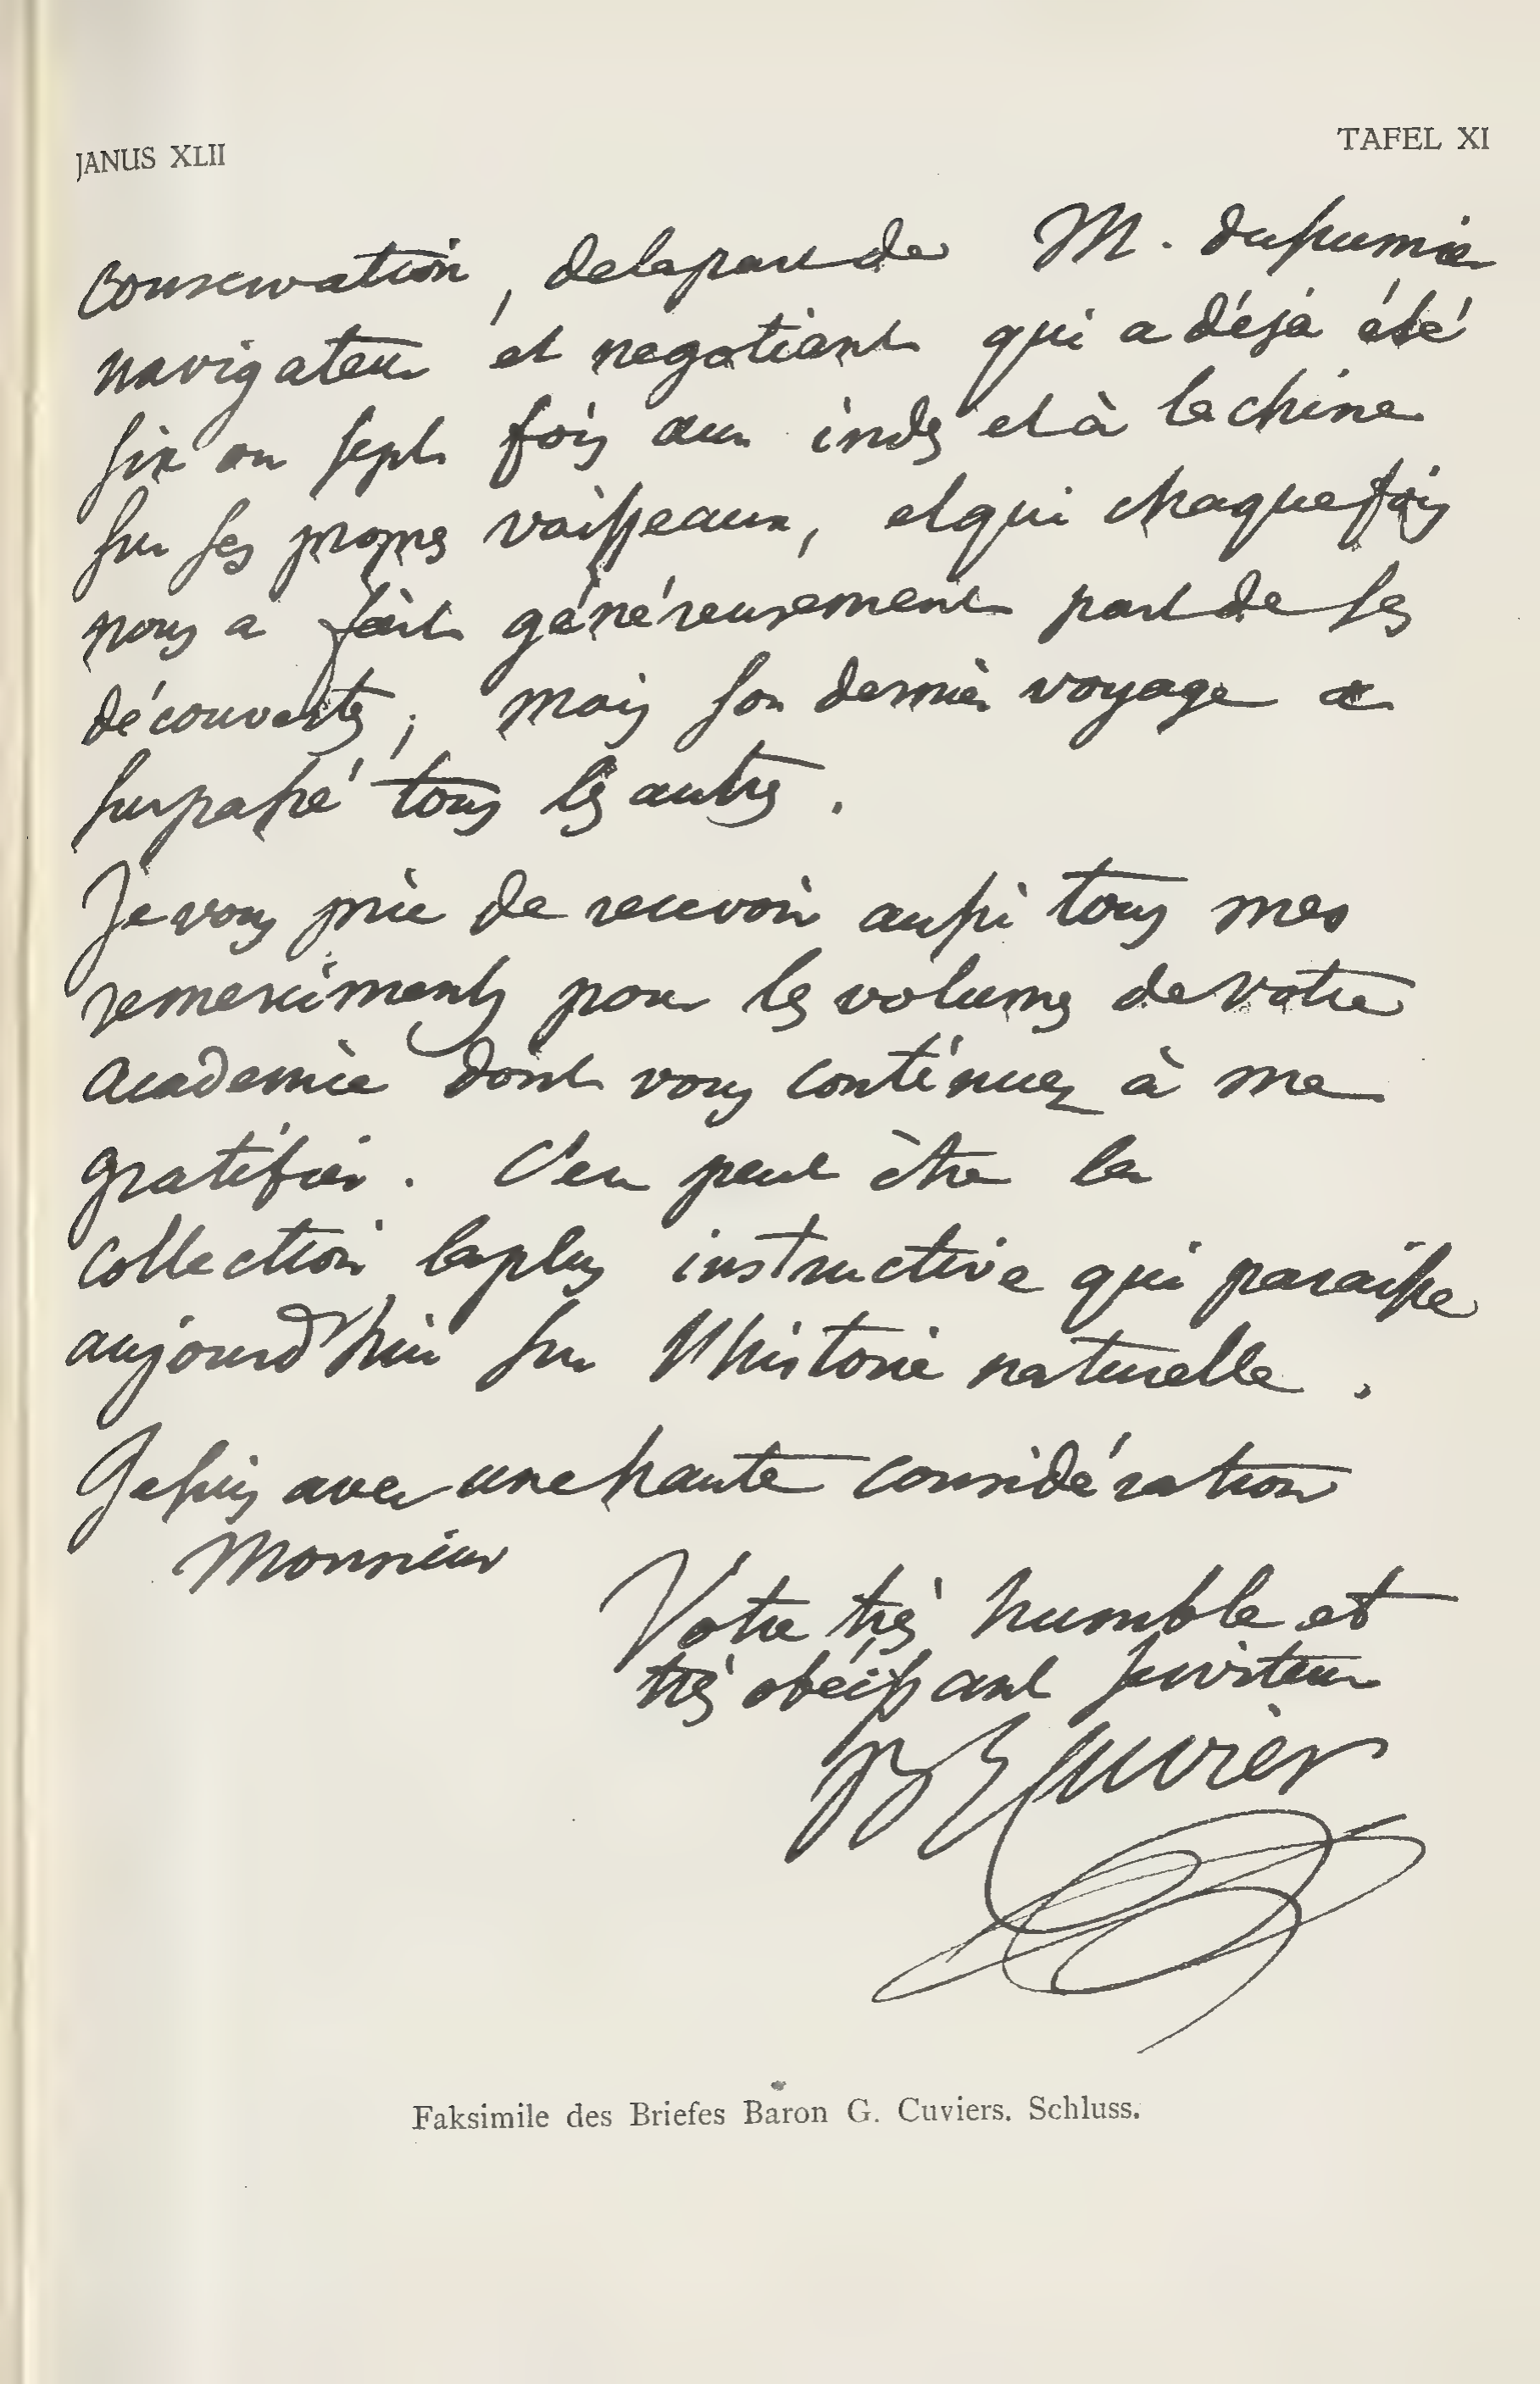 JANUS XLII
TAFEL XI
conservation, de la part de M. dussumier
navigateur et negotiant qui a déjà été
six ou sept fois aux indes et à la chine
sur ses propres vaisseaux, et qui chaque fois
nous a fait généreusement part de ses
découvertes; mais son dernier voyage a
surpassé tous les autres.
Je vous prie de recevoir aussi tous mes
remerciments pour les volumes de votre
academie dont vous continuez à me
gratifier. C'en peut être la
collection la plus instructive qui paraisse
aujourd'hui sur l'histoire naturelle.
Je suis avec une haute considération
Monsieur
Votre très humble et
très obéissant serviteur
B G Cuvier
Faksimile des Briefes Baron G. Cuviers. Schluss.